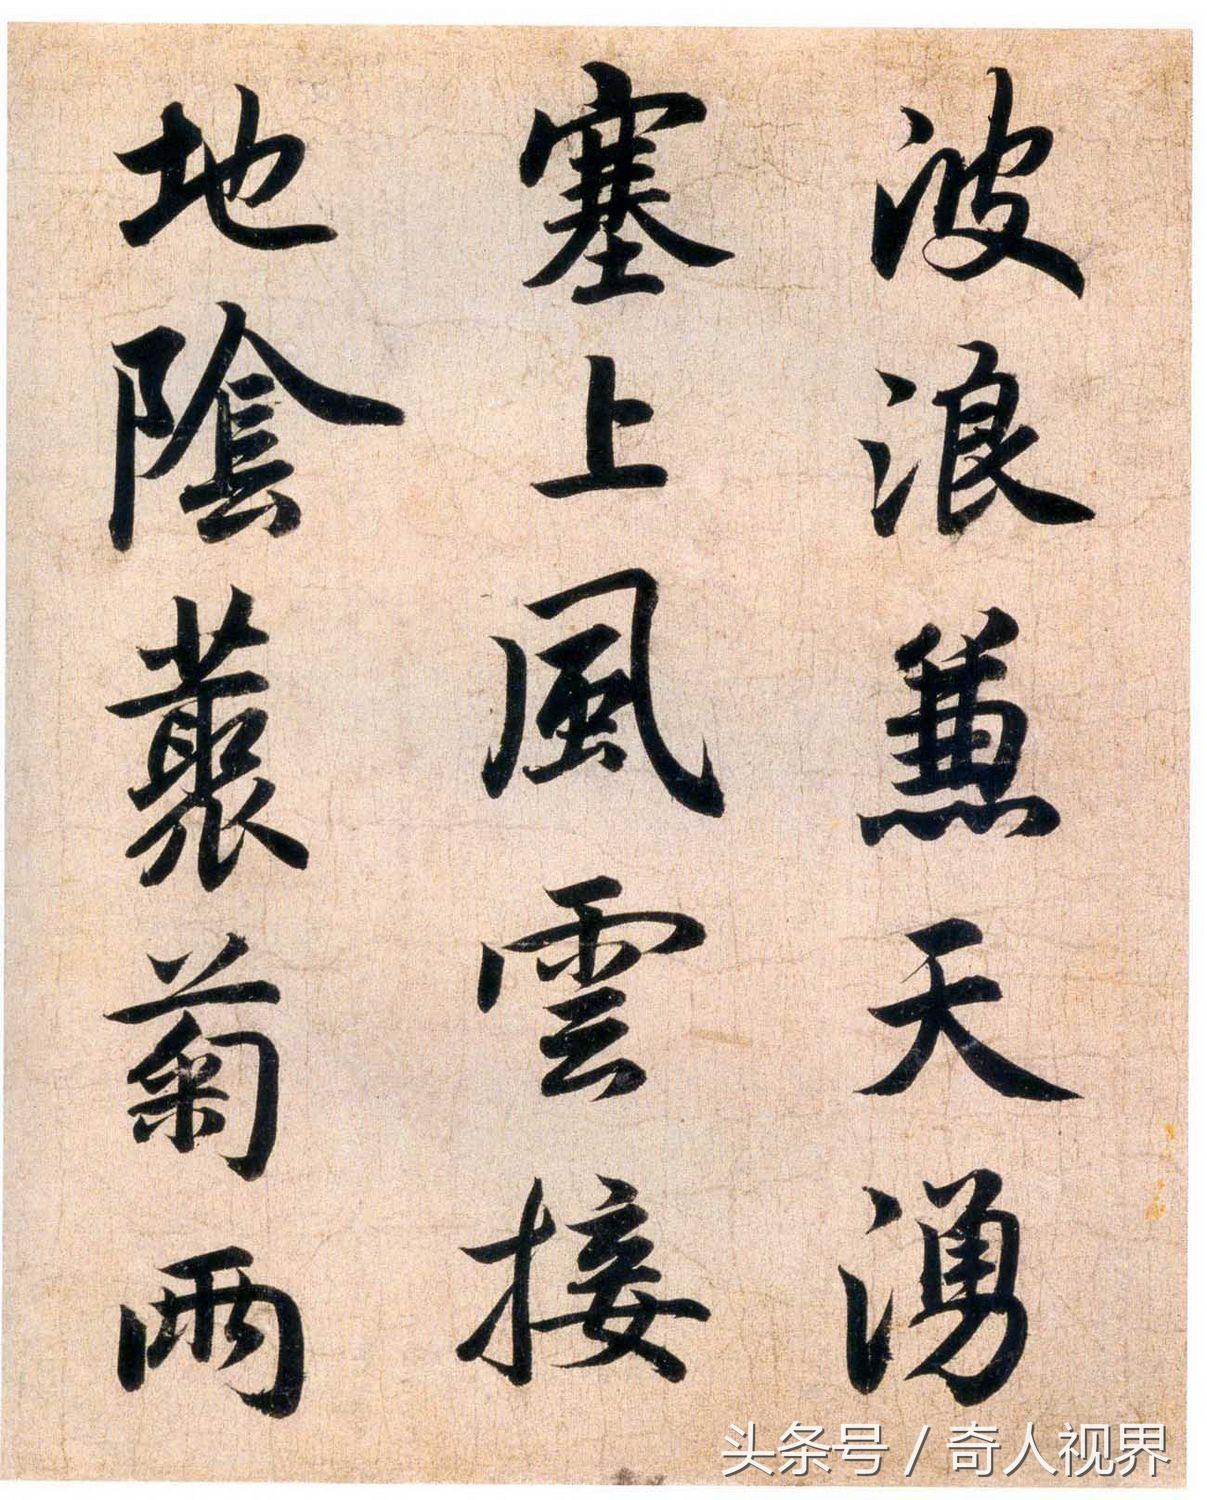 波浪蒹天湧
塞上風雲接
地陰叢菊兩
头条号 / 奇人视界